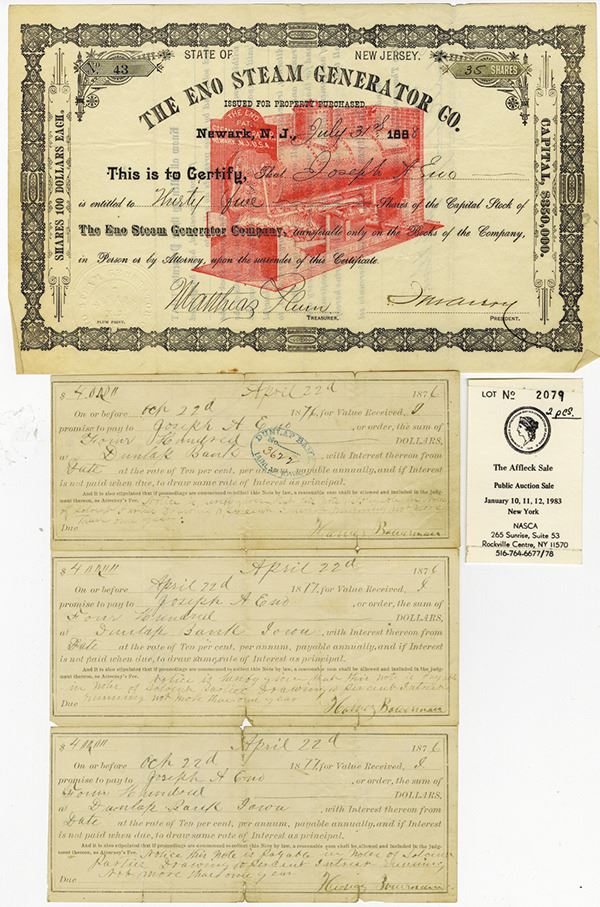 STATE OF NEW JERSEY.
No. 43
35 SHARES
THE ENO STEAM GENERATOR CO.
ISSUED FOR PROPERTY PURCHASED
THE ENO
PAT.
NEWARK, N.J. U.S.A.
Newark, N. J., July 31st 1888
This is to Certify, That Joseph A Eno
is entitled to Thirty five Shares of the Capital Stock of
The Eno Steam Generator Company, transferable only on the Books of the Company,
in Person or by Attorney, upon the surrender of this Certificate.
TREASURER.
PRESIDENT.
SHARES 100 DOLLARS EACH.
CAPITAL, $350,000.
$ 400 April 22d 1876
On or before Oct 22d 1876, for Value Received, I
promise to pay to Joseph A Eno, or order, the sum of
Four Hundred DOLLARS,
at Dunlap Bank, with Interest thereon from
Date at the rate of Ten per cent. per annum, payable annually, and if Interest
is not paid when due, to draw same rate of Interest as principal.
And it is also stipulated that if proceedings are commenced to collect this Note by law, a reasonable sum shall be allowed and included in the judg-
ment thereon, as Attorney's Fee.
than one year
Due Harvey Bowerman
DUNLAP BANK
No.
3622
DUNLAP, IOWA
$ 400 April 22d 1876
On or before April 22d 1877, for Value Received, I
promise to pay to Joseph A Eno, or order, the sum of
Four Hundred DOLLARS,
at Dunlap Bank Iowa, with Interest thereon from
Date at the rate of Ten per cent. per annum, payable annually, and if Interest
is not paid when due, to draw same rate of Interest as principal.
And it is also stipulated that if proceedings are commenced to collect this Note by law, a reasonable sum shall be allowed and included in the judg-
ment thereon, as Attorney's Fee. Notice is hereby given that this note is Payable
in Notes of Solvent Parties Drawing 10 Percent Interest
Running not more than one year
Due Harvey Bowerman
$ 400 April 22d 1876
On or before Oct 22d 1877, for Value Received, I
promise to pay to Joseph A Eno, or order, the sum of
Four Hundred DOLLARS,
at Dunlap Bank Iowa, with Interest thereon from
Date at the rate of Ten per cent. per annum, payable annually, and if Interest
is not paid when due, to draw same rate of Interest as principal.
And it is also stipulated that if proceedings are commenced to collect this Note by law, a reasonable sum shall be allowed and included in the judg-
ment thereon, as Attorney's Fee. Notice this Note is Payable in Notes of Solvent
Parties Drawing 10 Percent Interest Running
Not more than one year
Due Harvey Bowerman
LOT No 2079
2 pcs.
The Affleck Sale
Public Auction Sale
January 10, 11, 12, 1983
New York
NASCA
265 Sunrise, Suite 53
Rockville Centre, NY 11570
516-764-6677/78